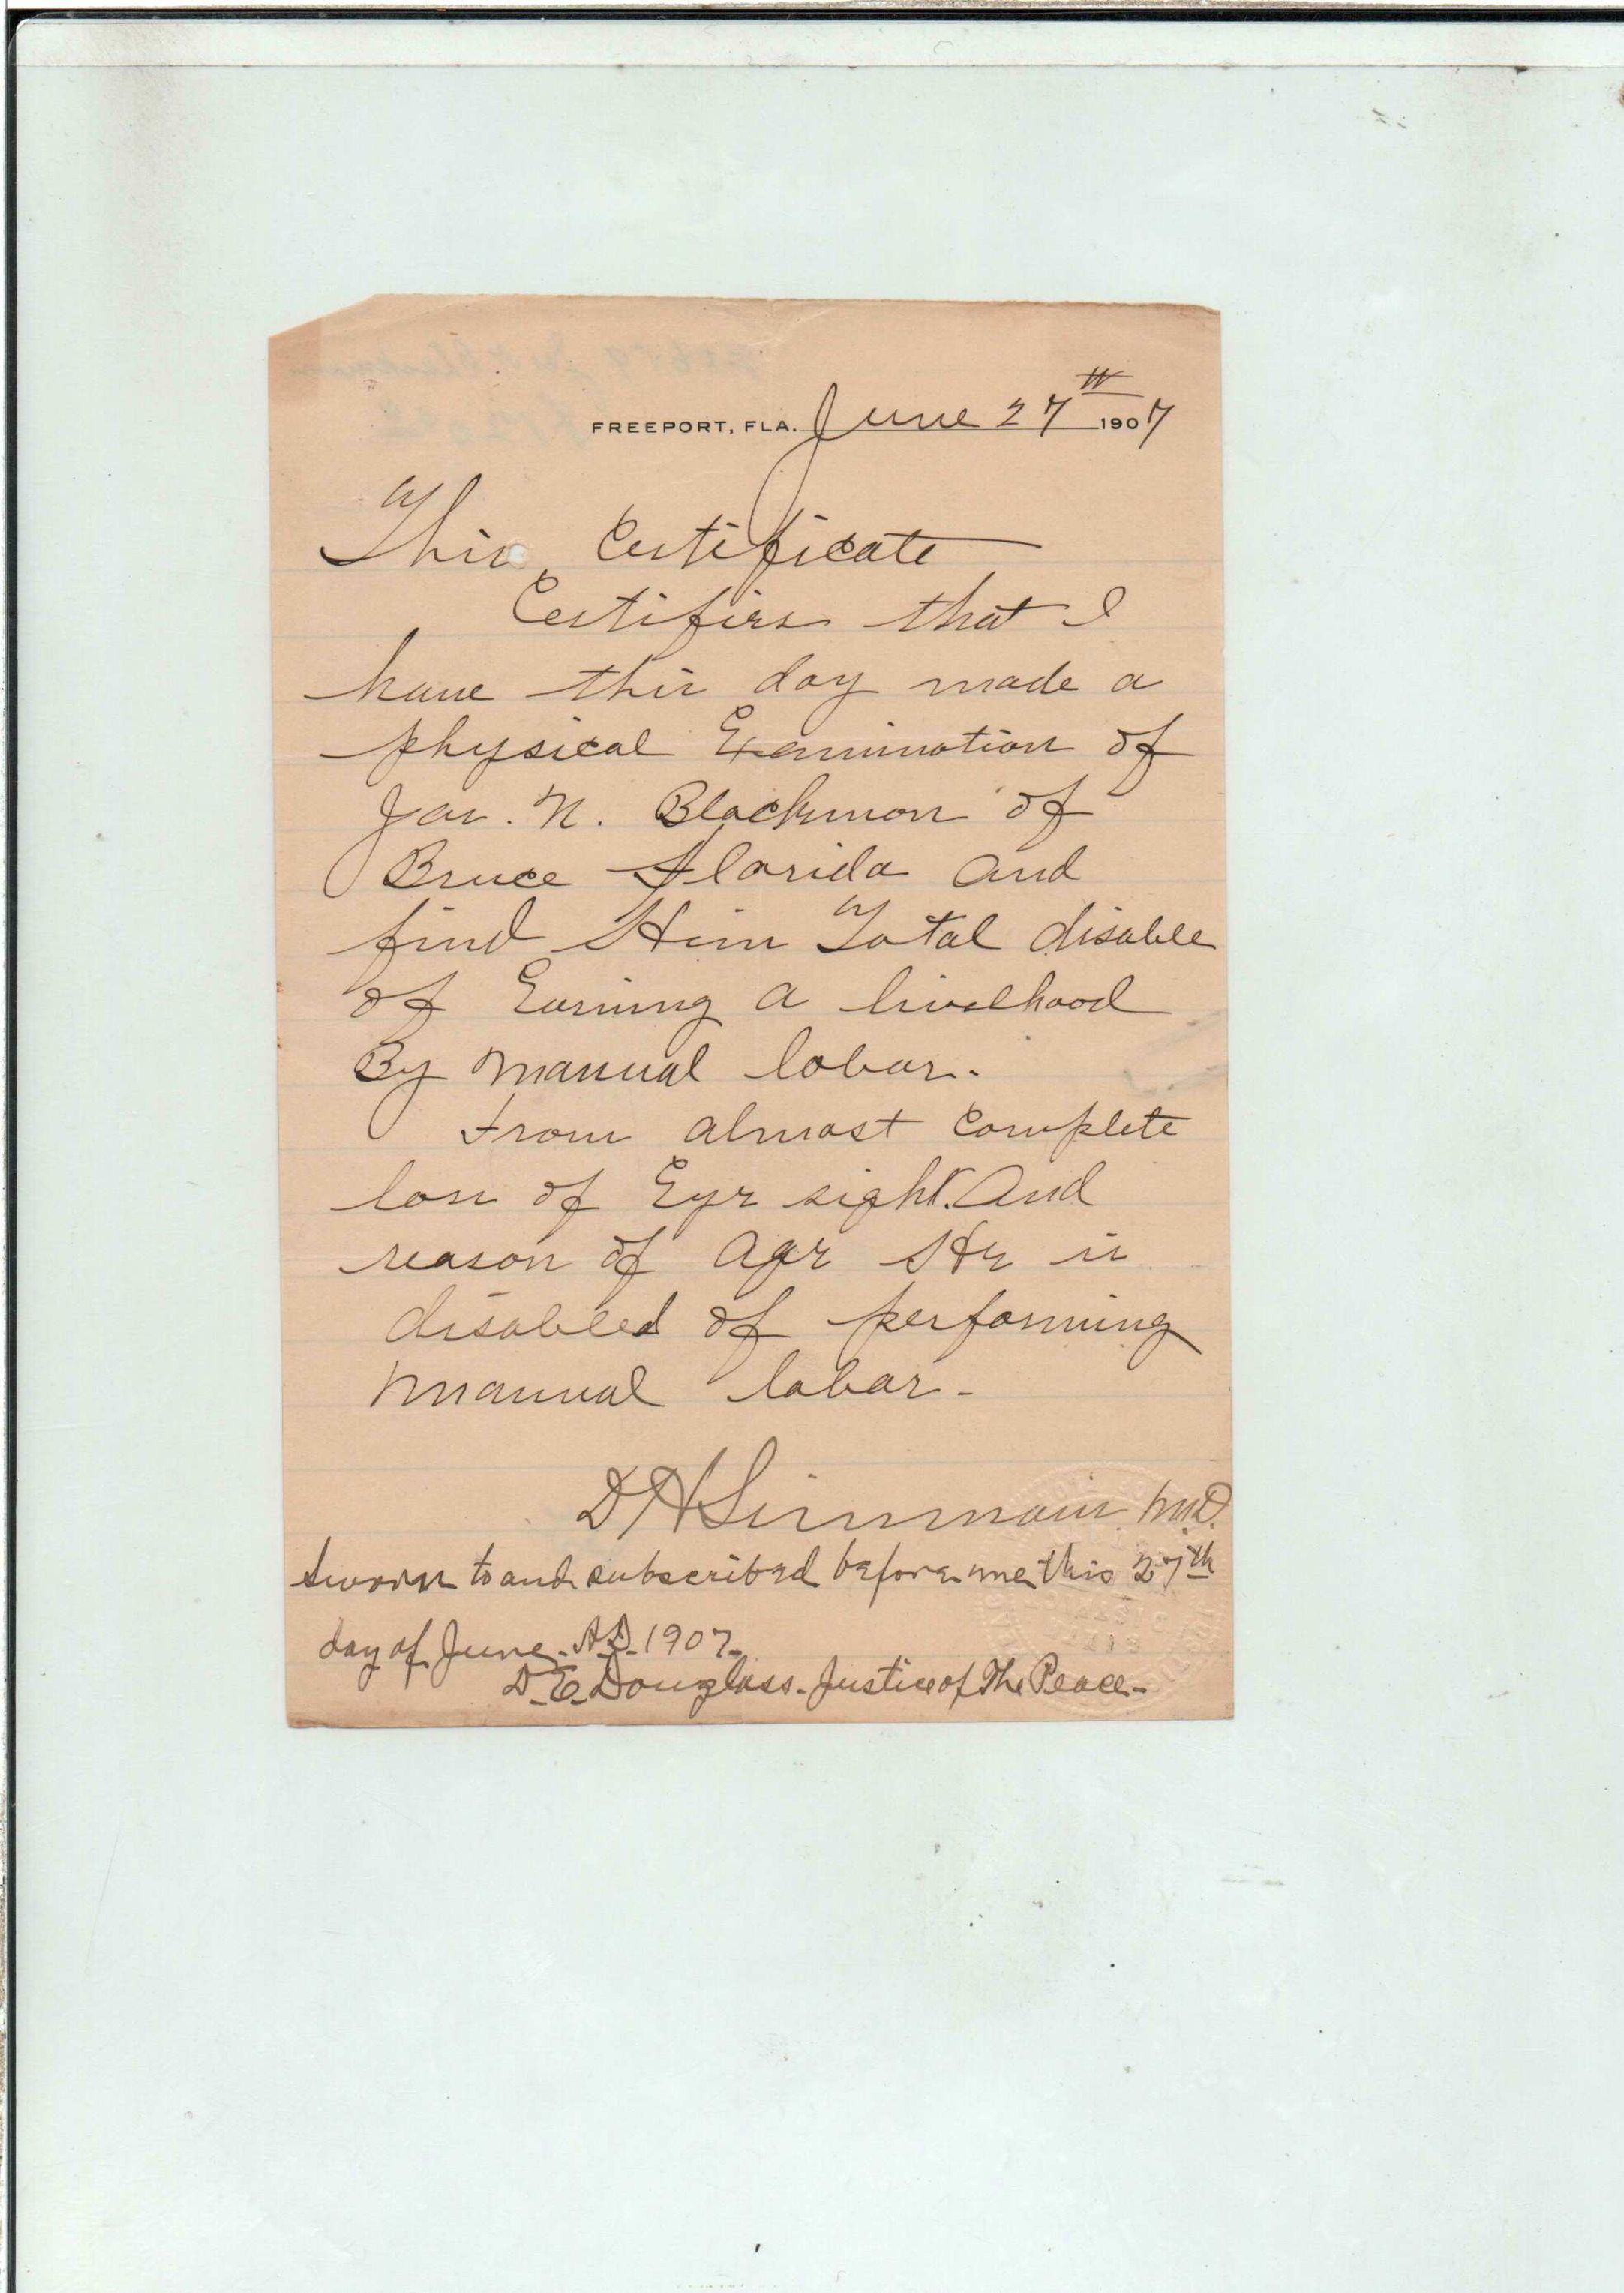 FREEPORT, FLA. June 27th 1907
This Certificate
Certifies that I
have this day made a
physical Examination of
Jas. N. Blackmon of
Bruce Florida and
find Him Total disable
of Earning a livelhood
By manual labor.
From almost complete
loss of Eye sight. And
reason of Age He is
disabled of performing
manual labor.
D H Simmons M.D.
Sworn to and subscribed before me this 27th
day of June A.D. 1907.
D. E. Douglass. Justice of The Peace.